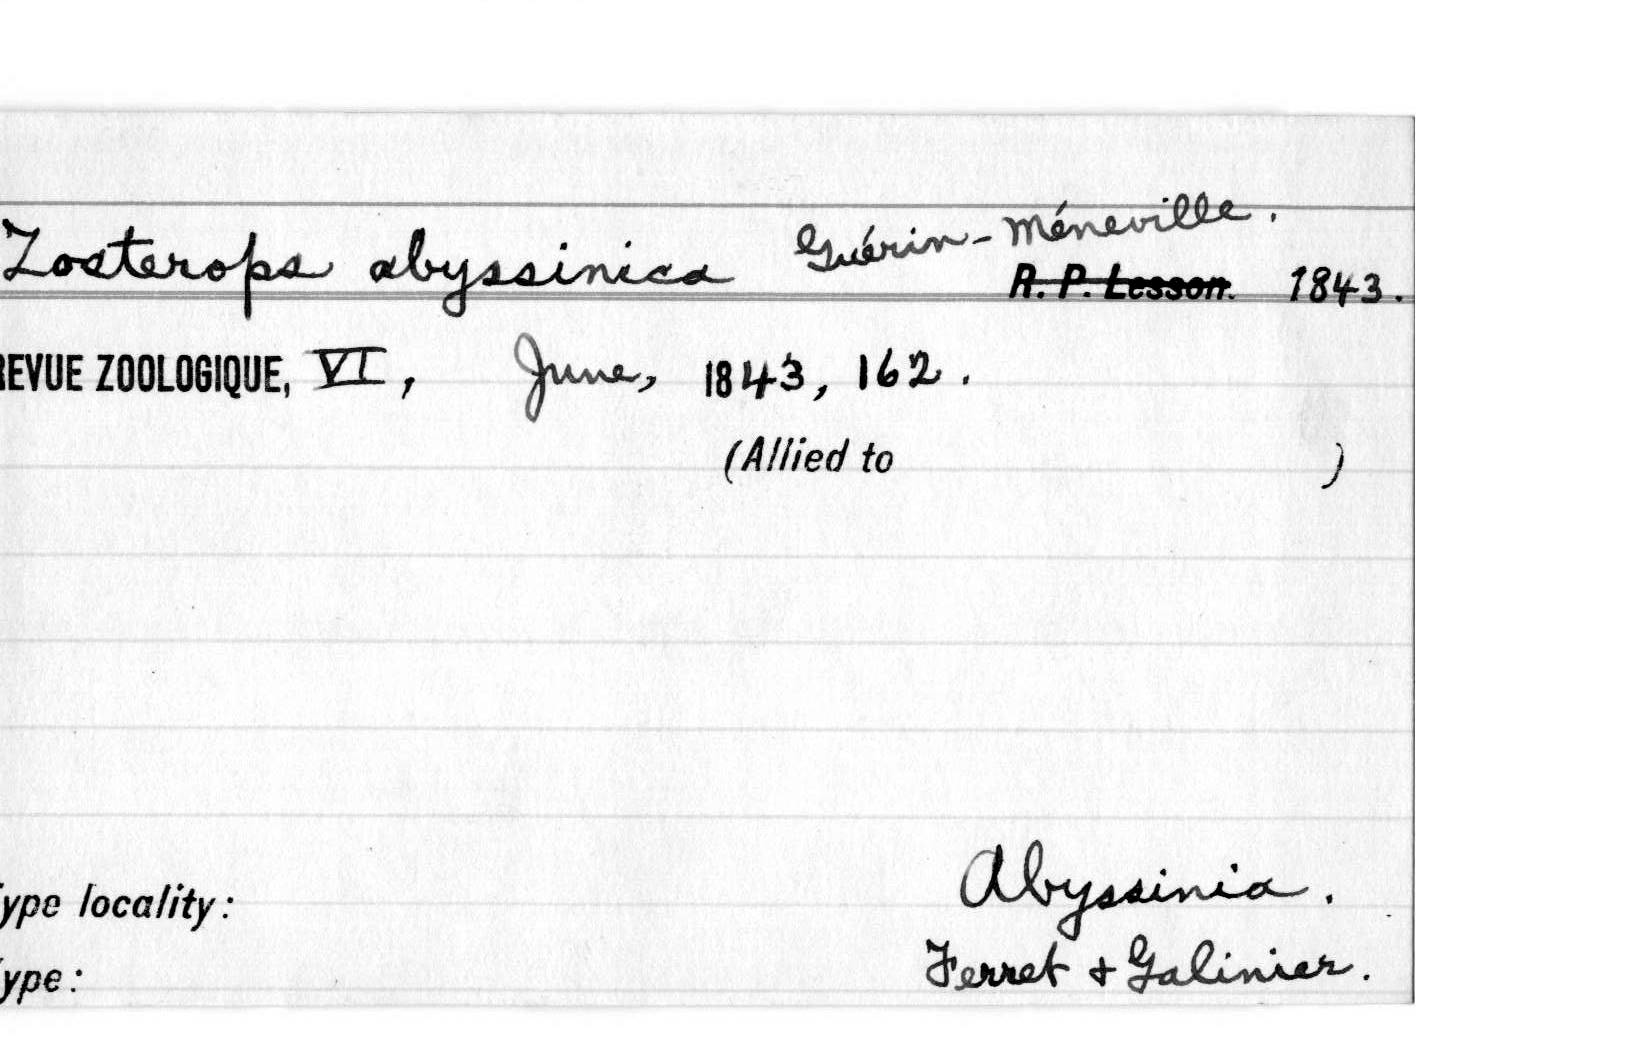 Zosterops abyssinica Guérin-Méneville.
R. P. Lesson. 1843.
REVUE ZOOLOGIQUE, VI, June, 1843, 162.
(Allied to )
Type locality: Abyssinia.
Type: Ferret + Galinier.